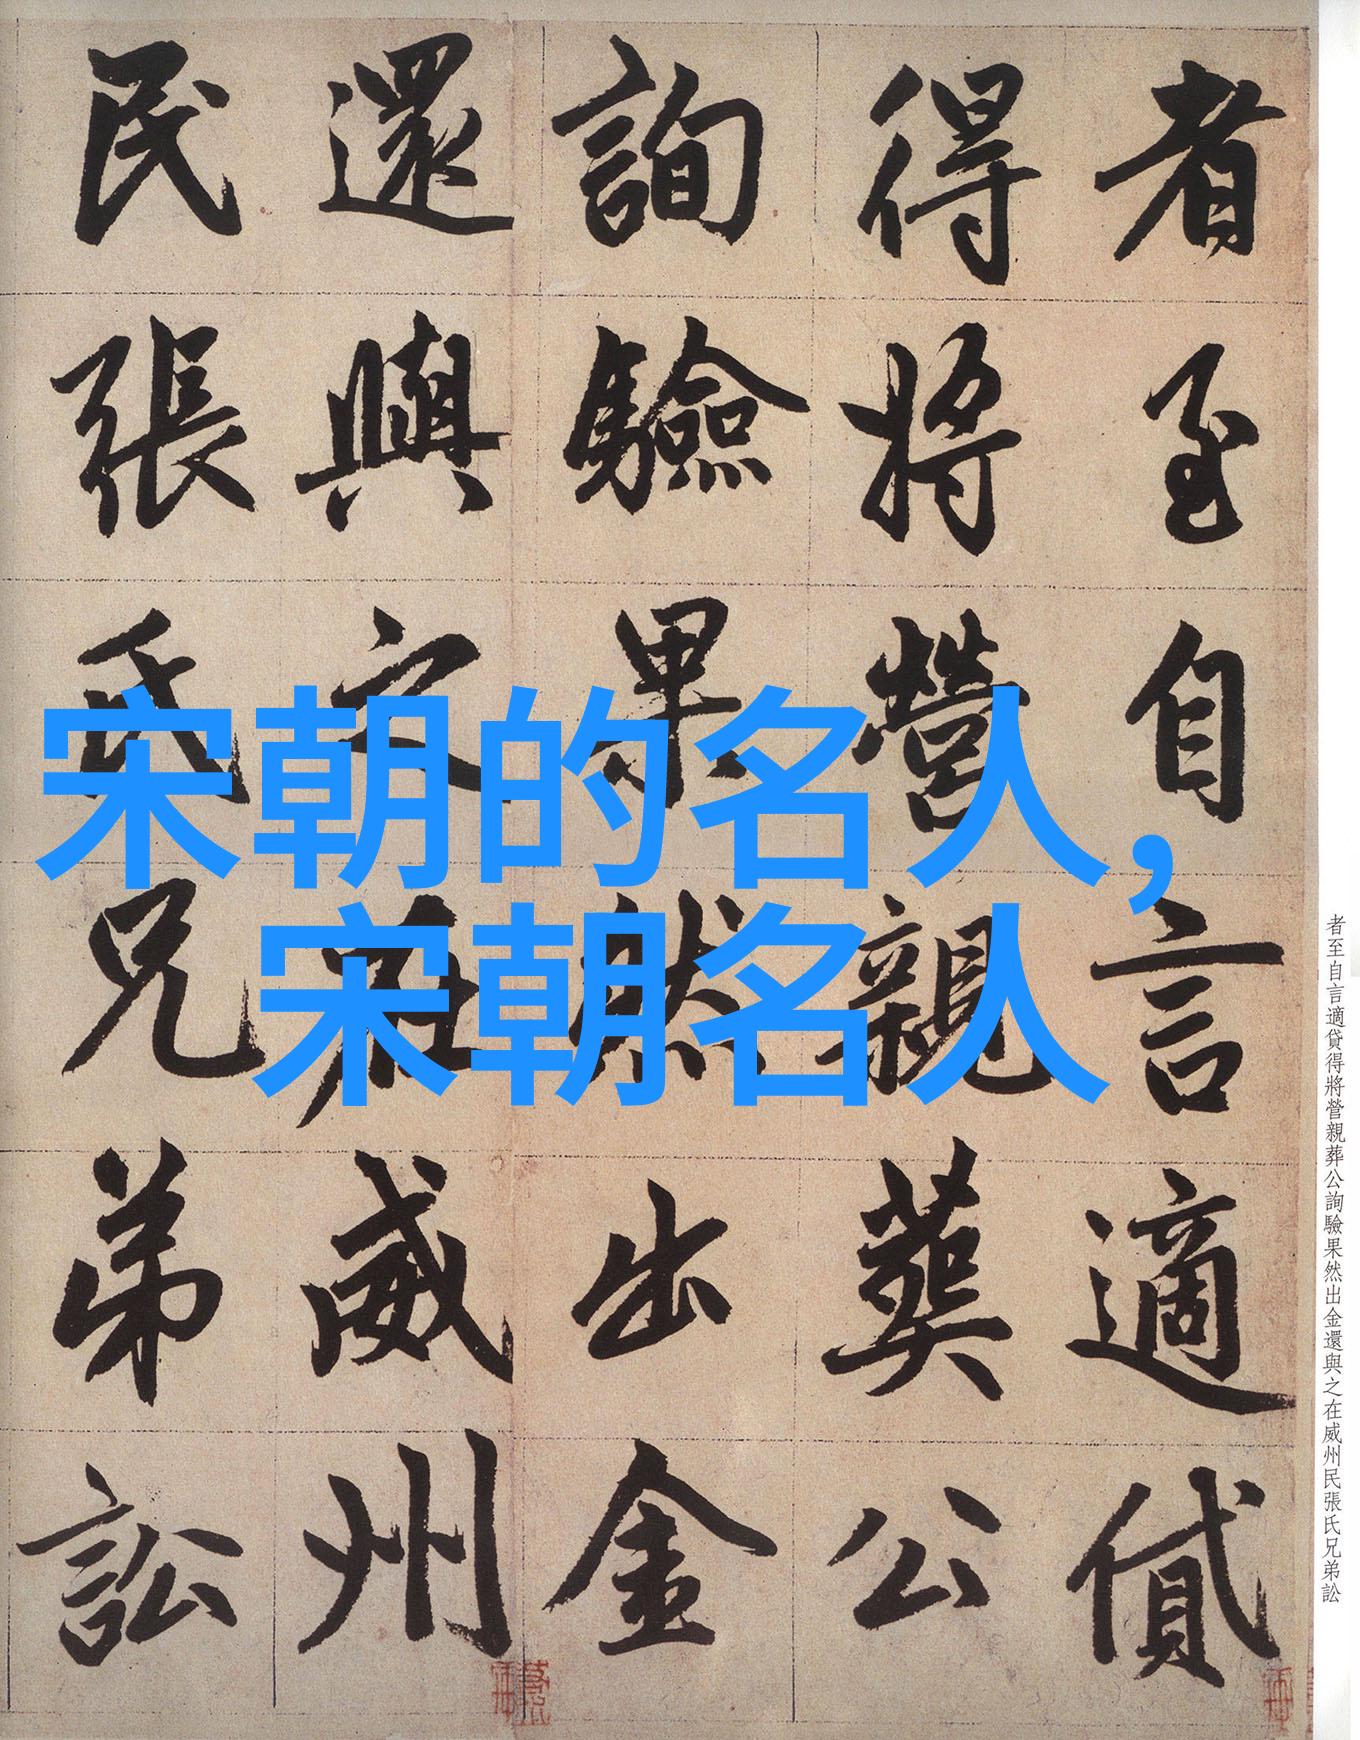 者至自言適貸
得將營親葬公
詢驗果然出金
還與之在威州
民張氏兄弟訟
宋朝的名人,
宋朝名人
者至自言適貸得將營親葬公詢驗果然出金還與之在威州民張氏兄弟訟